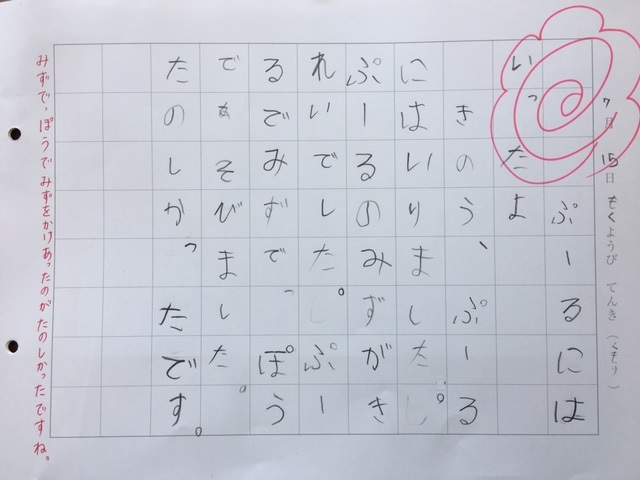 7月15日 もくようび てんき（くもり）
ぷーるには
いったよ
きのう、ぷーる
にはいりました。
ぷーるのみずがき
れいでした。ぷー
るでみずでっぽう
であそびました。
たのしかったです。
みずでっぽうでみずをかけあったのがたのしかったですね。